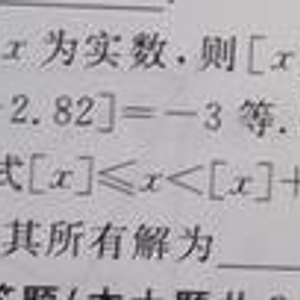 x为实数.则[x
2.82]=-3等.
式[x]≤x<[x]+
其所有解为